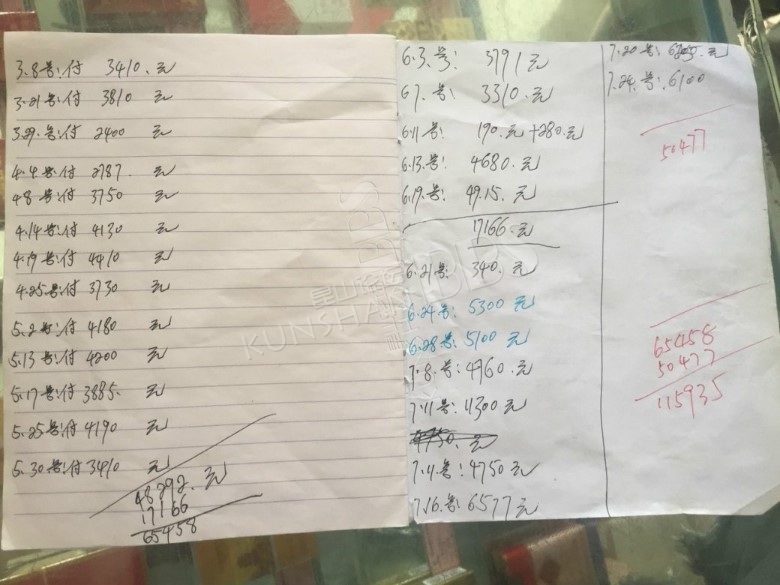 3.8号付 3410.元
3.21号付 3810 元
3.29.号付 2400 元
4.4号付 2787. 元
4.8号付 3750 元
4.14号付 4130 元
4.19号付 4410 元
4.25号付 3730 元
5.2号付 4180 元
5.13号付 4200 元
5.17号付 3885. 元
5.25号付 4190 元
5.30号付 3410 元
48292.元
17166
65458
6.3.号: 3791元
6.7.号: 3310.元
6.11号: 190.元+280.元
6.13.号: 4680.元
6.19.号: 4915.元
17166.元
6.21号: 340.元
6.24号: 5300元
6.28号: 5100元
7.8.号: 4960.元
7.11号: 4300元
元
4750元
7.16.号: 6577元
7.20号: 元
7.24.号: 6100
50477
65458
50477
115935
昆山论坛
KUNSHANBBS